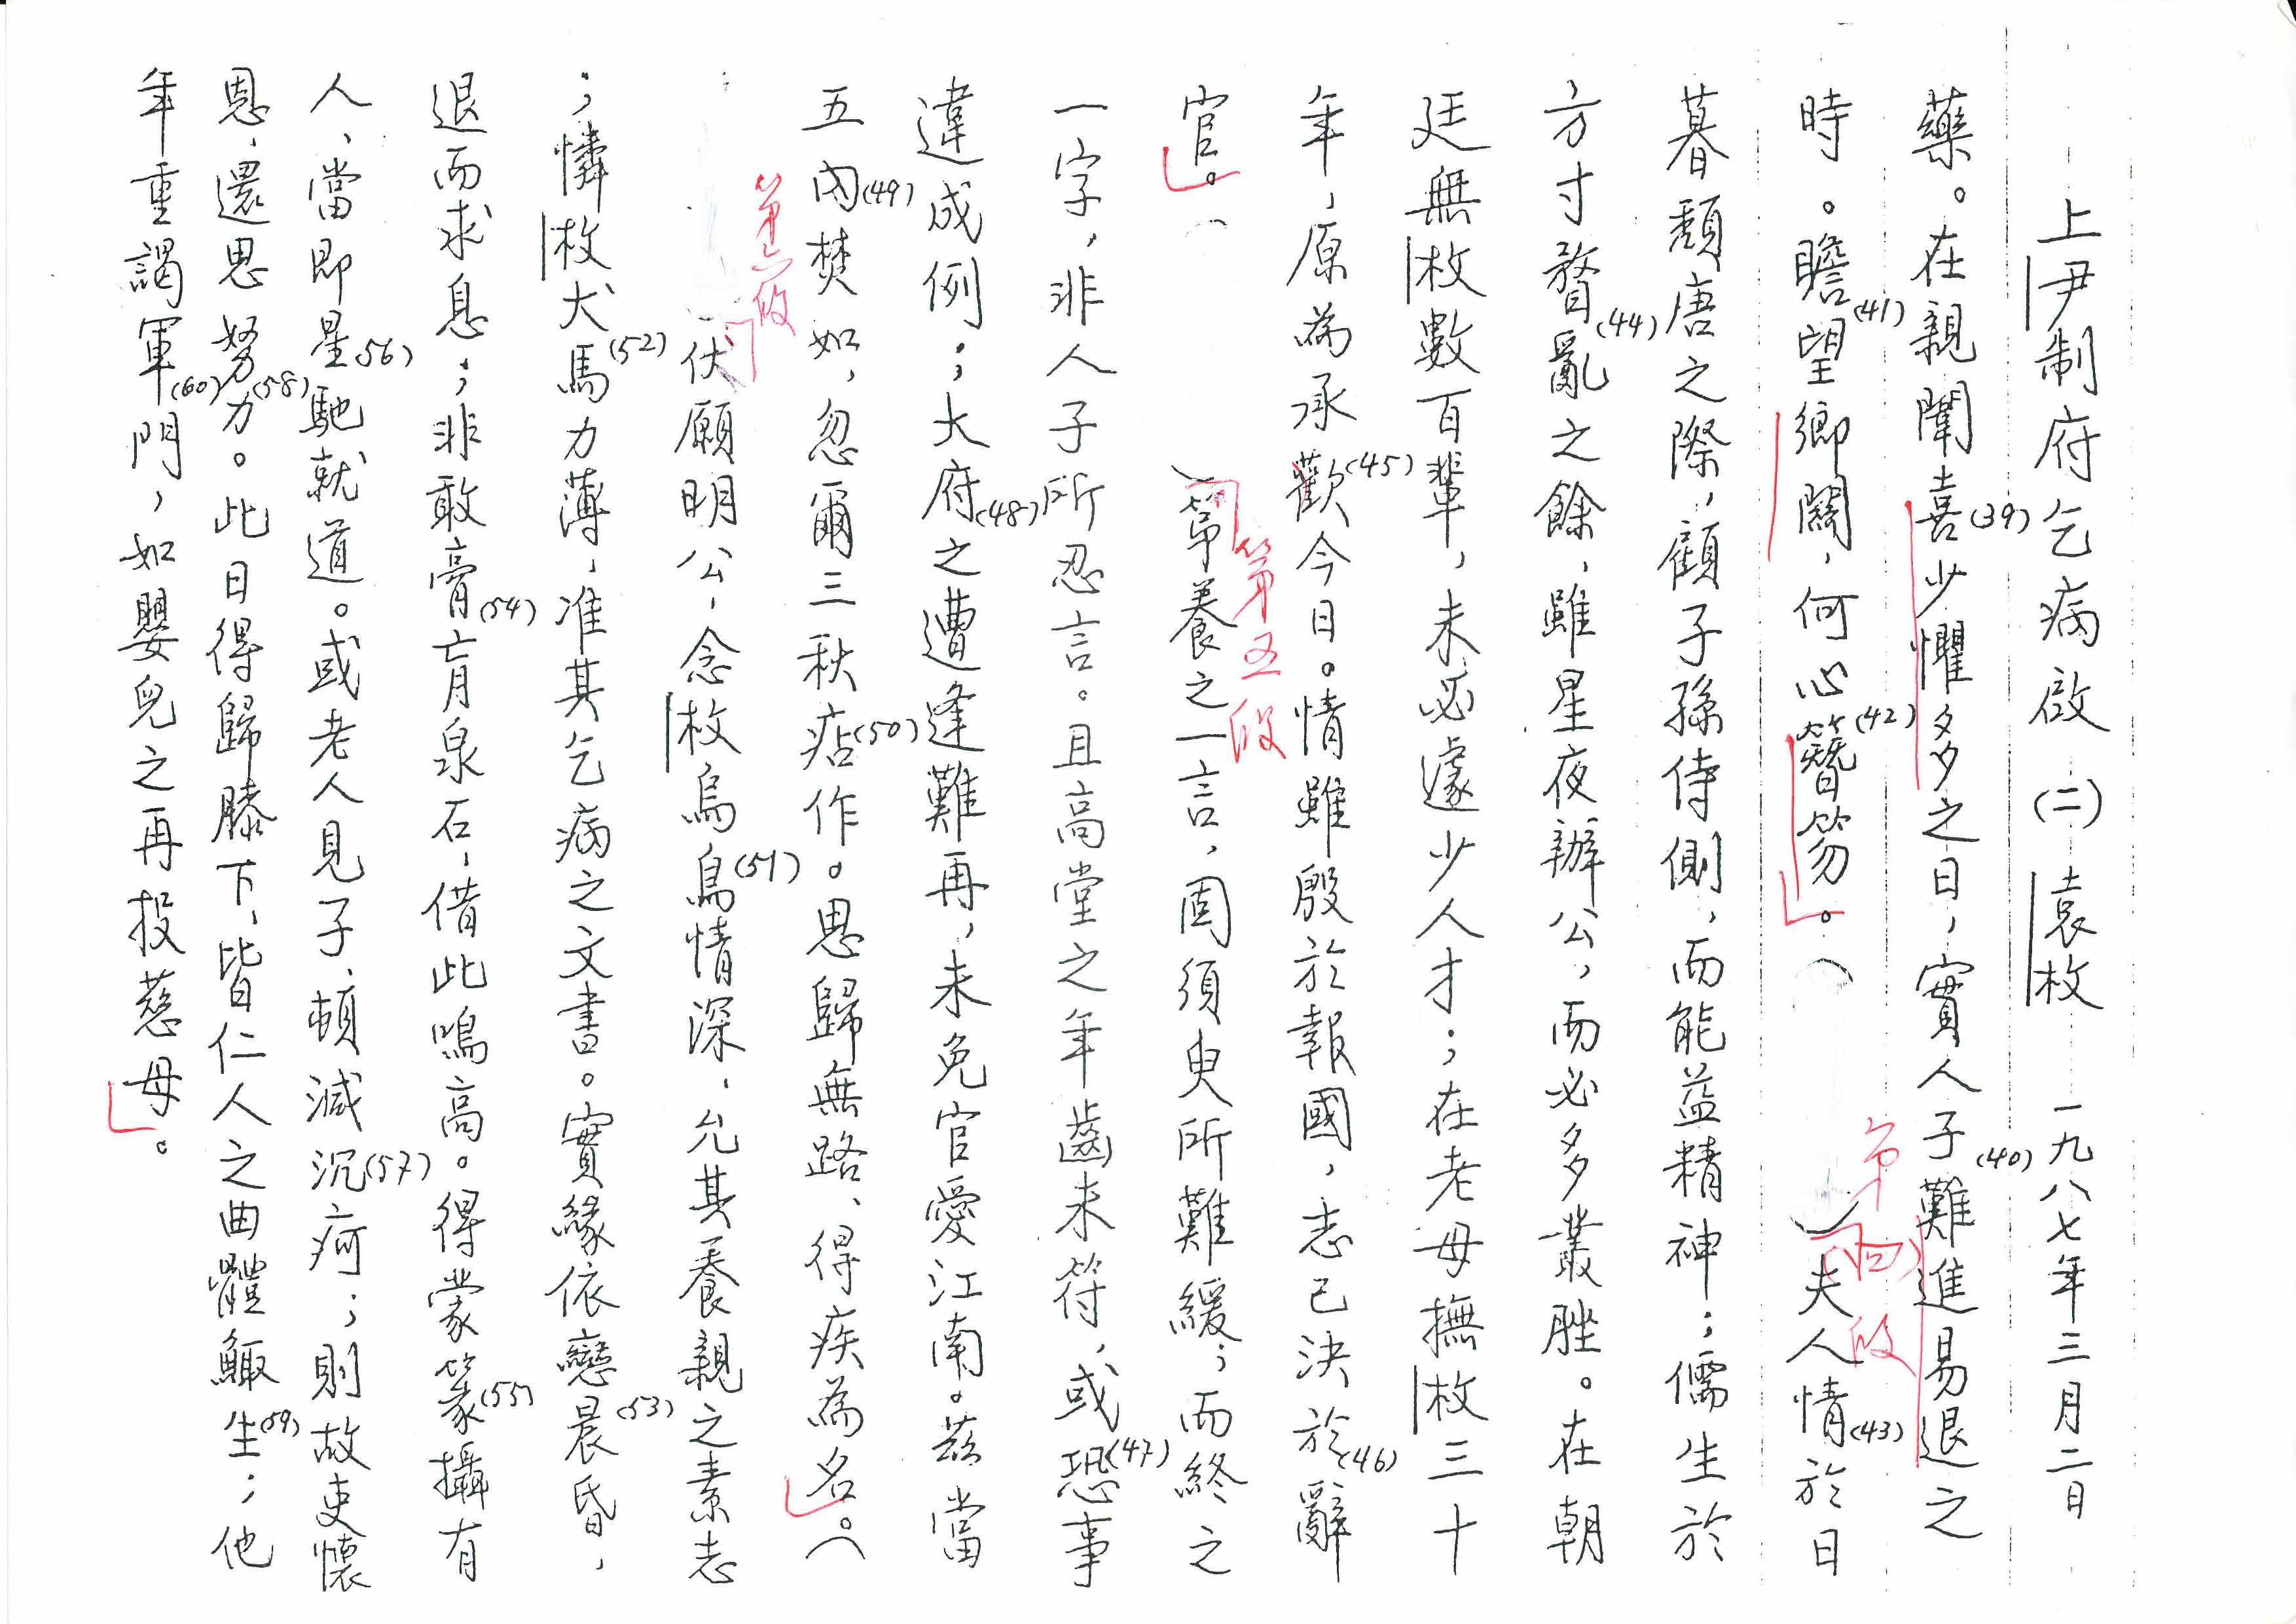 上尹制府乞病啟（二）袁枚　一九八七年三月二日
藥。在親闈喜(39)少懼多之日，實人子(40)難進易退之
時。瞻(41)望鄉關，何心簪(42)笏。（第四段）夫人情(43)於日
暮頹唐之際，顧子孫侍側，而能益精神；儒生於
方寸瞀(44)亂之餘，雖星夜辦公，而必多叢脞。在朝
廷無枚數百輩，未必遽少人才；在老母撫枚三十
年，原為承歡(45)今日。情雖殷於報國，志已決於(46)辭
官。（第五段）第養之一言，固須臾所難緩；而終之
一字，非人子所忍言。且高堂之年齒未符，或恐(47)事
違成例；大府(48)之遭逢難再，未免官愛江南。茲當
五內(49)焚如，忽爾三秋痁(50)作。思歸無路、得疾為名。（
第六段
伏願明公，念枚烏鳥(51)情深，允其養親之素志
；憐枚犬馬(52)力薄，准其乞病之文書。實緣依戀晨(53)昏，
退而求息；非敢膏(54)肓泉石，借此鳴高。得蒙篆(55)攝有
人，當即星(56)馳就道。或老人見子，頓減沉(57)疴；則故吏懷
恩，還思努(58)力。此日得歸膝下，皆仁人之曲體鯫生(59)；他
年重謁軍(60)門，如嬰兒之再投慈母。